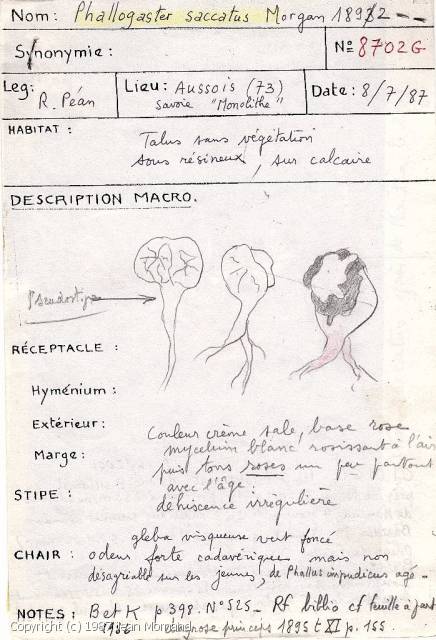 Nom: Phallogaster saccatus Morgan 1892 --
Synonymie:
No 8702G
Leg: R. Péan
Lieu: Aussois (73)
Savoie "Monolithe"
Date: 8/7/87
HABITAT :
Talus sans végétation
sous résineux, sur calcaire
DESCRIPTION MACRO.
Pseudostipe
RÉCEPTACLE :
Hyménium :
Extérieur :
Couleur crème sale, base rose
Marge :
mycelium blanc rosissant à l'air
puis tons roses un peu partout
avec l'âge.
STIPE :
déhiscence irrégulière
gleba visqueuse vert foncé
CHAIR : odeur forte cadavérique mais non
désagréable sur les jeunes, de Phallus impudicus agé -
NOTES : B et K p 398. N° 525 - Rf biblio cf feuille à part
1986 princips 1895 t XI p. 155.
Copyright (c) 1987 Jean Mornand